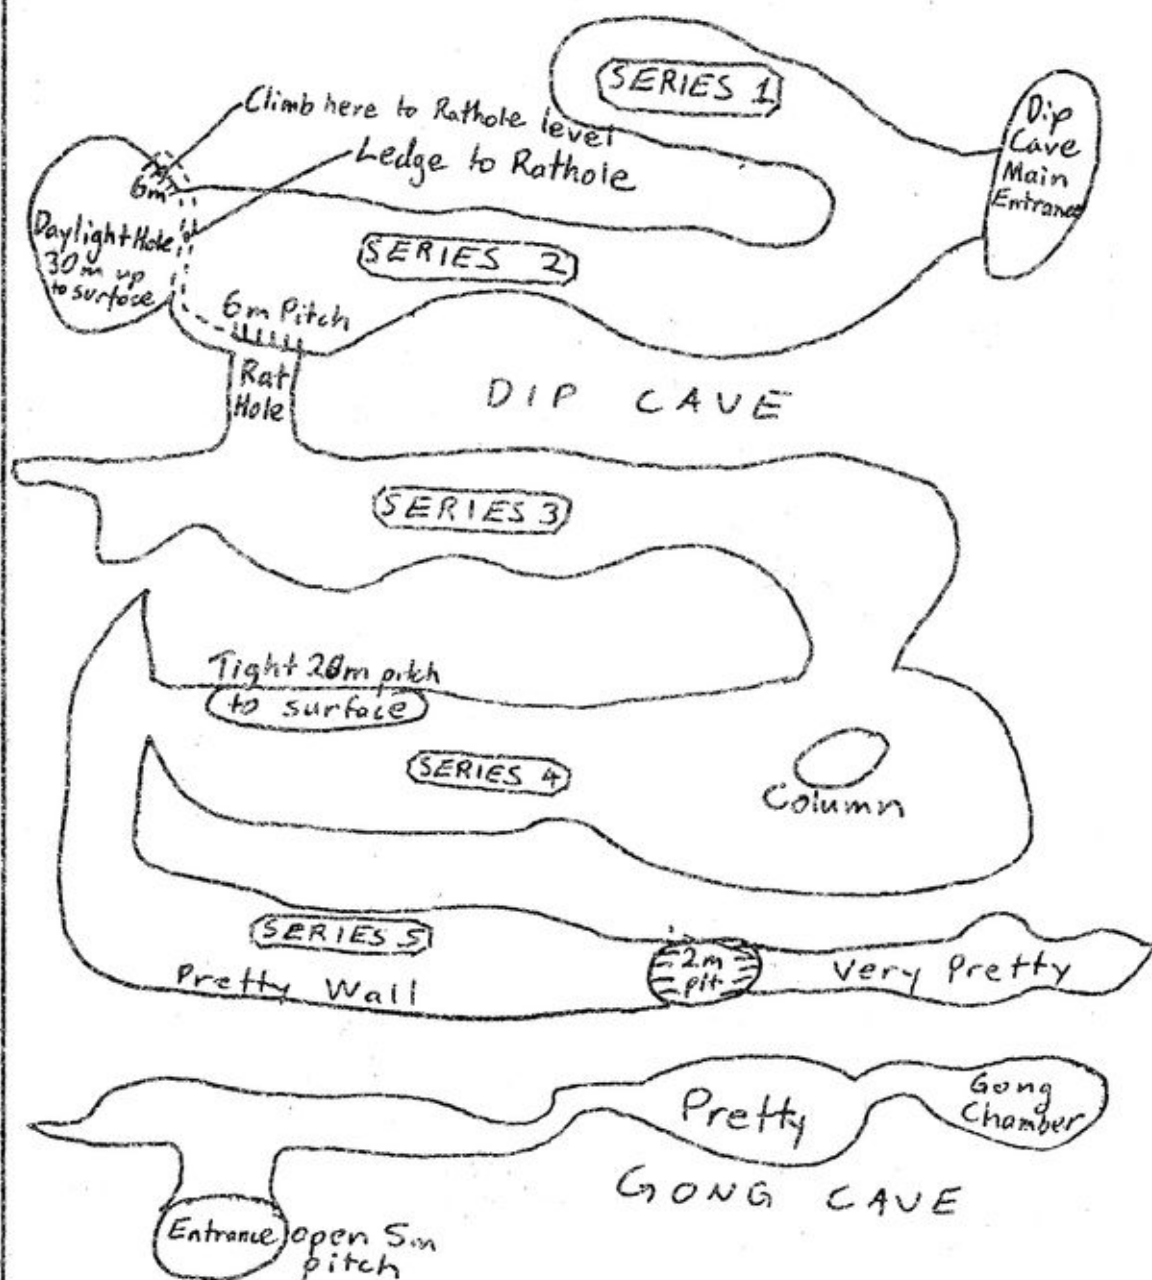 SERIES 1
Dip
Cave
Main
Entrance
Climb here to Rathole level
Ledge to Rathole
6m
Daylight Hole
30m up
to surface
SERIES 2
6m Pitch
Rat
Hole
DIP CAVE
SERIES 3
Tight 20m pitch
to surface
SERIES 4
Column
SERIES 5
Pretty Wall
2m
pit
Very Pretty
Pretty
Gong
Chamber
GONG CAVE
Entrance open 5m
pitch